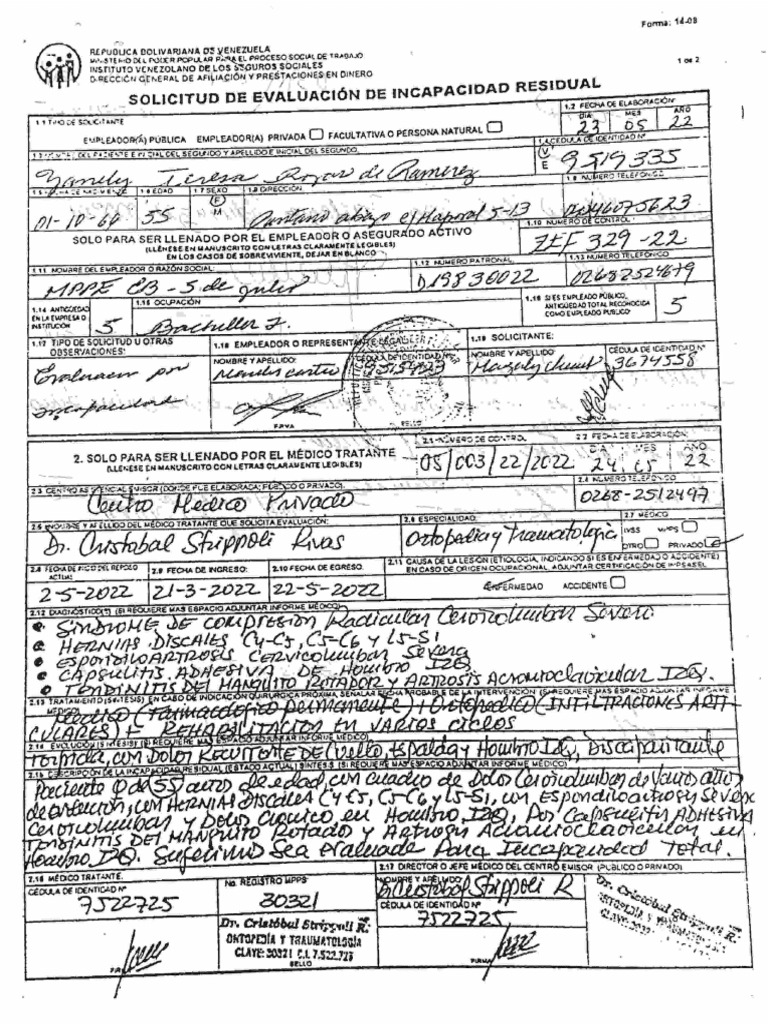 Forma: 14-08
REPUBLICA BOLIVARIANA DE VENEZUELA
MINISTERIO DEL PODER POPULAR PARA EL PROCESO SOCIAL DE TRABAJO
INSTITUTO VENEZOLANO DE LOS SEGUROS SOCIALES
DIRECCIÓN GENERAL DE AFILIACIÓN Y PRESTACIONES EN DINERO
1 de 2
SOLICITUD DE EVALUACIÓN DE INCAPACIDAD RESIDUAL
1.1 TIPO DE SOLICITANTE
1.2 FECHA DE ELABORACIÓN
DIA MES AÑO
EMPLEADOR(A) PÚBLICA EMPLEADOR(A) PRIVADA FACULTATIVA O PERSONA NATURAL
23 05 22
1.4 CÉDULA DE IDENTIDAD Nº
Teresa Rojas de Ramirez
V E 9519335
1.6 EDAD 1.7 SEXO 1.8 DIRECCIÓN
1.9 NÚMERO TELEFONO
01-10-66 55 F M abajo el 5-13
04146075623
SOLO PARA SER LLENADO POR EL EMPLEADOR O ASEGURADO ACTIVO
(LLÉNESE EN MANUSCRITO CON LETRAS CLARAMENTE LEGIBLES)
EN LOS CASOS DE SOBREVIVIENTE, DEJAR EN BLANCO
1.10 NÚMERO DE CONTROL
329-22
1.11 NOMBRE DEL EMPLEADOR O RAZÓN SOCIAL:
1.12 NÚMERO PATRONAL
1.13 NÚMERO TELEFÓNICO
MPPE CB - 5 de julio
D19830022
02682524679
1.14 ANTIGÜEDAD EN LA EMPRESA O INSTITUCIÓN
5
1.15 OCUPACIÓN
Bachiller I.
1.16 SI ES EMPLEADO PÚBLICO, ANTIGÜEDAD TOTAL RECONOCIDA COMO EMPLEADO PUBLICO
5
1.17 TIPO DE SOLICITUD U OTRAS OBSERVACIONES:
1.18 EMPLEADOR O REPRESENTANTE LEGAL
1.19 SOLICITANTE:
NOMBRE Y APELLIDO: CÉDULA DE IDENTIDAD Nº
NOMBRE Y APELLIDO: CÉDULA DE IDENTIDAD Nº
Evaluacion por incapacidad
3674558
FIRMA
SELLO
2. SOLO PARA SER LLENADO POR EL MÉDICO TRATANTE
(LLÉNESE EN MANUSCRITO CON LETRAS CLARAMENTE LEGIBLES)
2.1 NÚMERO DE CONTROL
05/003/22/2022
2.2 FECHA DE ELABORACIÓN
DIA MES AÑO
24 05 22
2.3 CENTRO ASISTENCIAL EMISOR (DONDE FUE ELABORADA; PÚBLICO O PRIVADO):
Centro Medico Privado
2.4 NÚMERO TELEFONO
0268-2512497
2.5 NOMBRE Y APELLIDO DEL MÉDICO TRATANTE QUE SOLICITA EVALUACIÓN:
Dr. Cristobal Strippoli Rivas
2.6 ESPECIALIDAD:
Ortopedia y Traumatologia
2.7 MÉDICO
IVSS MPPS
OTRO PRIVADO
2.8 FECHA DE INICIO DEL REPOSO ACTUAL:
2-5-2022
2.9 FECHA DE INGRESO:
21-3-2022
2.10 FECHA DE EGRESO:
22-5-2022
2.11 CAUSA DE LA LESIÓN (ETIOLOGÍA, INDICANDO SI ES ENFERMEDAD O ACCIDENTE)
EN CASO DE ORIGEN OCUPACIONAL, ADJUNTAR CERTIFICACIÓN DE INPSASEL
ENFERMEDAD ACCIDENTE
2.12 DIAGNÓSTICO(S) (SI REQUIERE MAS ESPACIO ADJUNTAR INFORME MÉDICO)
• SINDROME DE COMPRESION Radicular Cervicolumbar Severa.
• HERNIAS DISCALES C4-C5, C5-C6 y L5-S1
• ESPONDILOARTROSIS CERVICOLUMBAR Severa
• CAPSULITIS ADHESIVA DE HOMBRO IZQ
• TENDINITIS DEL MANGUITO ROTADOR y ARTROSIS Acromioclavicular IZQ.
2.13 TRATAMIENTO (SINTESIS) EN CASO DE INDICACIÓN QUIRÚRGICA PRÓXIMA, SEÑALAR FECHA PROBABLE DE LA INTERVENCIÓN (SI REQUIERE MAS ESPACIO ADJUNTAR INFORME MÉDICO)
Medico (Farmacologico permanente) + Ortopedico (INFILTRACIONES ARTI-
CULARES) + REHABILITACION EN VARIOS CICLOS
2.14 EVOLUCIÓN (SINTESIS) (SI REQUIERE MAS ESPACIO ADJUNTAR INFORME MÉDICO)
Torpida, con Dolor Recurrente de Cuello, Espalda y Hombro IZQ, Discapacitante
2.15 DESCRIPCIÓN DE LA INCAPACIDAD RESIDUAL (ESTADO ACTUAL) SINTESIS (SI REQUIERE MAS ESPACIO ADJUNTAR INFORME MÉDICO)
Paciente ♀ de 55 años de edad, con cuadro de Dolor Cervicolumbar de varios años
de evolucion, con HERNIAS DISCALES C4-C5, C5-C6 y L5-S1, con Espondiloartrosis Severa
Cervicolumbar y Dolor cronico en Hombro IZQ, Por Capsulitis ADHESIVA
TENDINITIS DEL MANGUITO Rotador y Artrosis Acromioclavicular en
Hombro IZQ. Sugerimos Sea evaluada Para Incapacidad Total.
2.16 MÉDICO TRATANTE.
CÉDULA DE IDENTIDAD Nº
7522725
No. REGISTRO MPPS
30321
2.17 DIRECTOR O JEFE MÉDICO DEL CENTRO EMISOR (PÚBLICO O PRIVADO)
NOMBRE Y APELLIDO
Dr. Cristobal Strippoli R
CÉDULA DE IDENTIDAD Nº
7522725
Dr. Cristóbal Strippoli R.
ORTOPEDÍA Y TRAUMATOLOGÍA
CLAVE: 30321 C.I. 7.522.725
SELLO
FIRMA
FIRMA
Dr. Cristóbal Strippoli R.
ORTOPEDÍA Y TRAUMATOLOGÍA